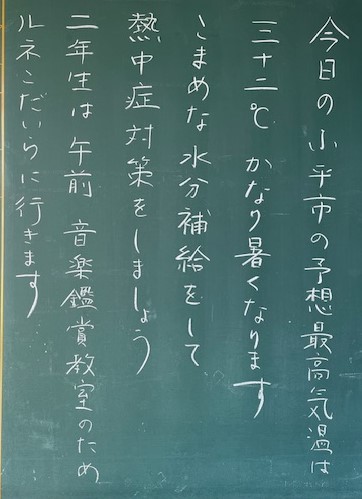 今日の小平市の予想最高気温は
三十二℃ かなり暑くなります
こまめな水分補給をして
熱中症対策をしましょう
二年生は午前 音楽鑑賞教室のため
ルネこだいらに行きます